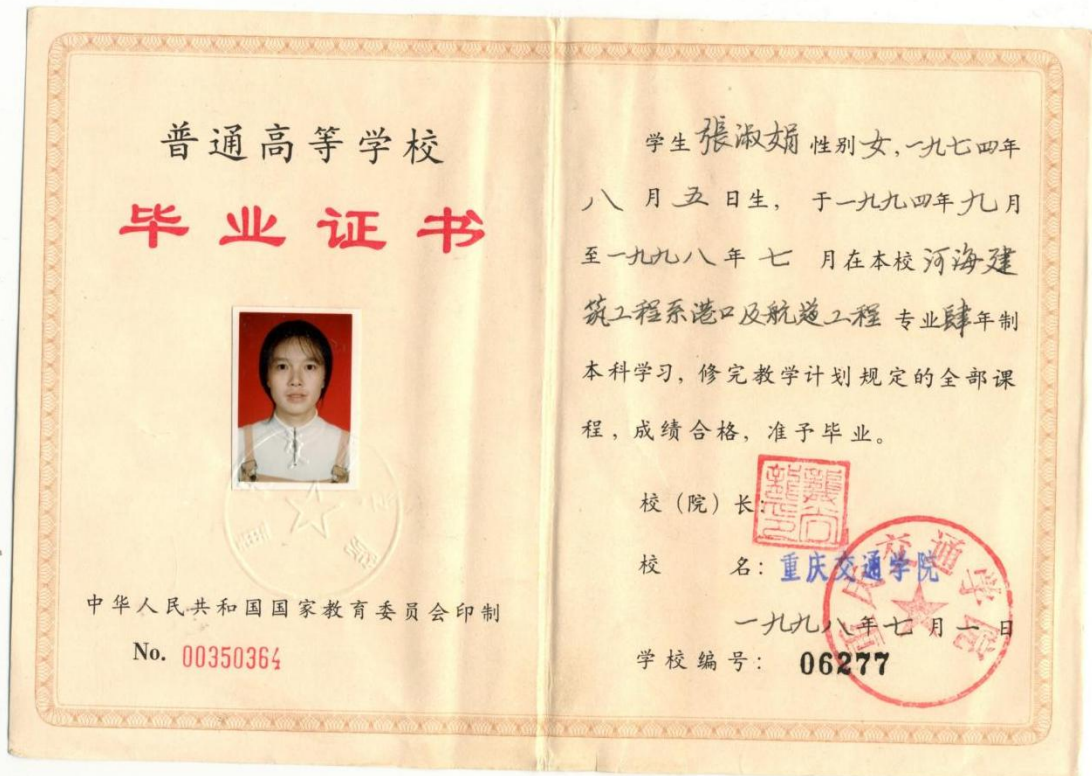 普通高等学校
毕业证书
中华人民共和国国家教育委员会印制
No. 00350364
学生張淑娟性别女,一九七四年
八月五日生,于一九九四年九月
至一九九八年七月在本校河海建
筑工程系港口及航道工程专业肆年制
本科学习,修完教学计划规定的全部课
程,成绩合格,准予毕业。
校(院)长:
校名:重庆交通学院
一九九八年七月一日
学校编号:06277
重庆交通学院